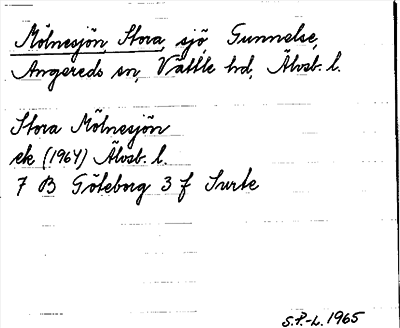 Mölnesjön, Stora, sjö, Gunnelse,
Angereds sn, Vättle hd, Älvsb. l.
Stora Mölnesjön
ek (1964) Älvsb. l.
7 B Göteborg 3 f Surte
S.P.-L. 1965